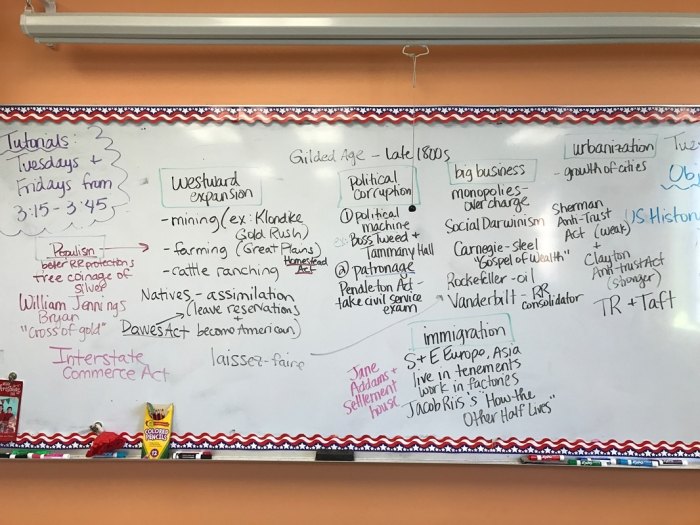 Tutorials:
Tuesdays +
Fridays from
3:15 - 3:45
Gilded Age - Late 1800s
Westward
expansion
- mining (ex: Klondike
Gold Rush)
- farming (Great Plains)
Homestead
Act
- cattle ranching
Natives - assimilation
(leave reservations
+
Dawes Act become American)
laissez-faire
Populism -
better RR protections
free coinage of
silver
William Jennings
Bryan
"cross of gold"
Interstate
Commerce Act
Political
corruption
① political
machine
ex: Boss Tweed +
Tammany Hall
② patronage
Pendleton Act -
take civil service
exam
big business
monopolies -
overcharge
Social Darwinism
Carnegie - steel
"Gospel of Wealth"
Rockefeller - oil
Vanderbilt - RR
consolidator
Sherman
Anti-Trust
Act (weak)
+
Clayton
Anti-trust Act
(stronger)
TR + Taft
urbanization
- growth of cities
immigration
S + E Europe, Asia
live in tenements
work in factories
Jacob Riis's "How the
Other Half Lives"
Jane
Addams +
Settlement
house
Tue
Obj
US Histor
COLORED
PENCILS
12